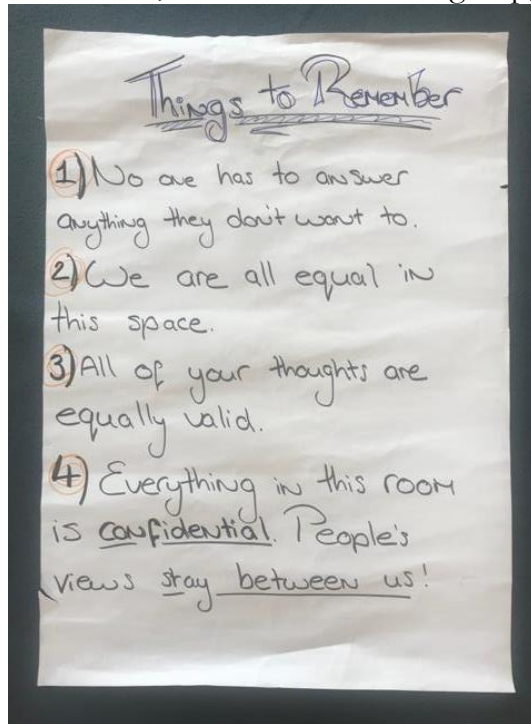 Things to Remember
1) No one has to answer
anything they don't want to.
2) We are all equal in
this space.
3) All of your thoughts are
equally valid.
4) Everything in this room
is confidential. People's
views stay between us!